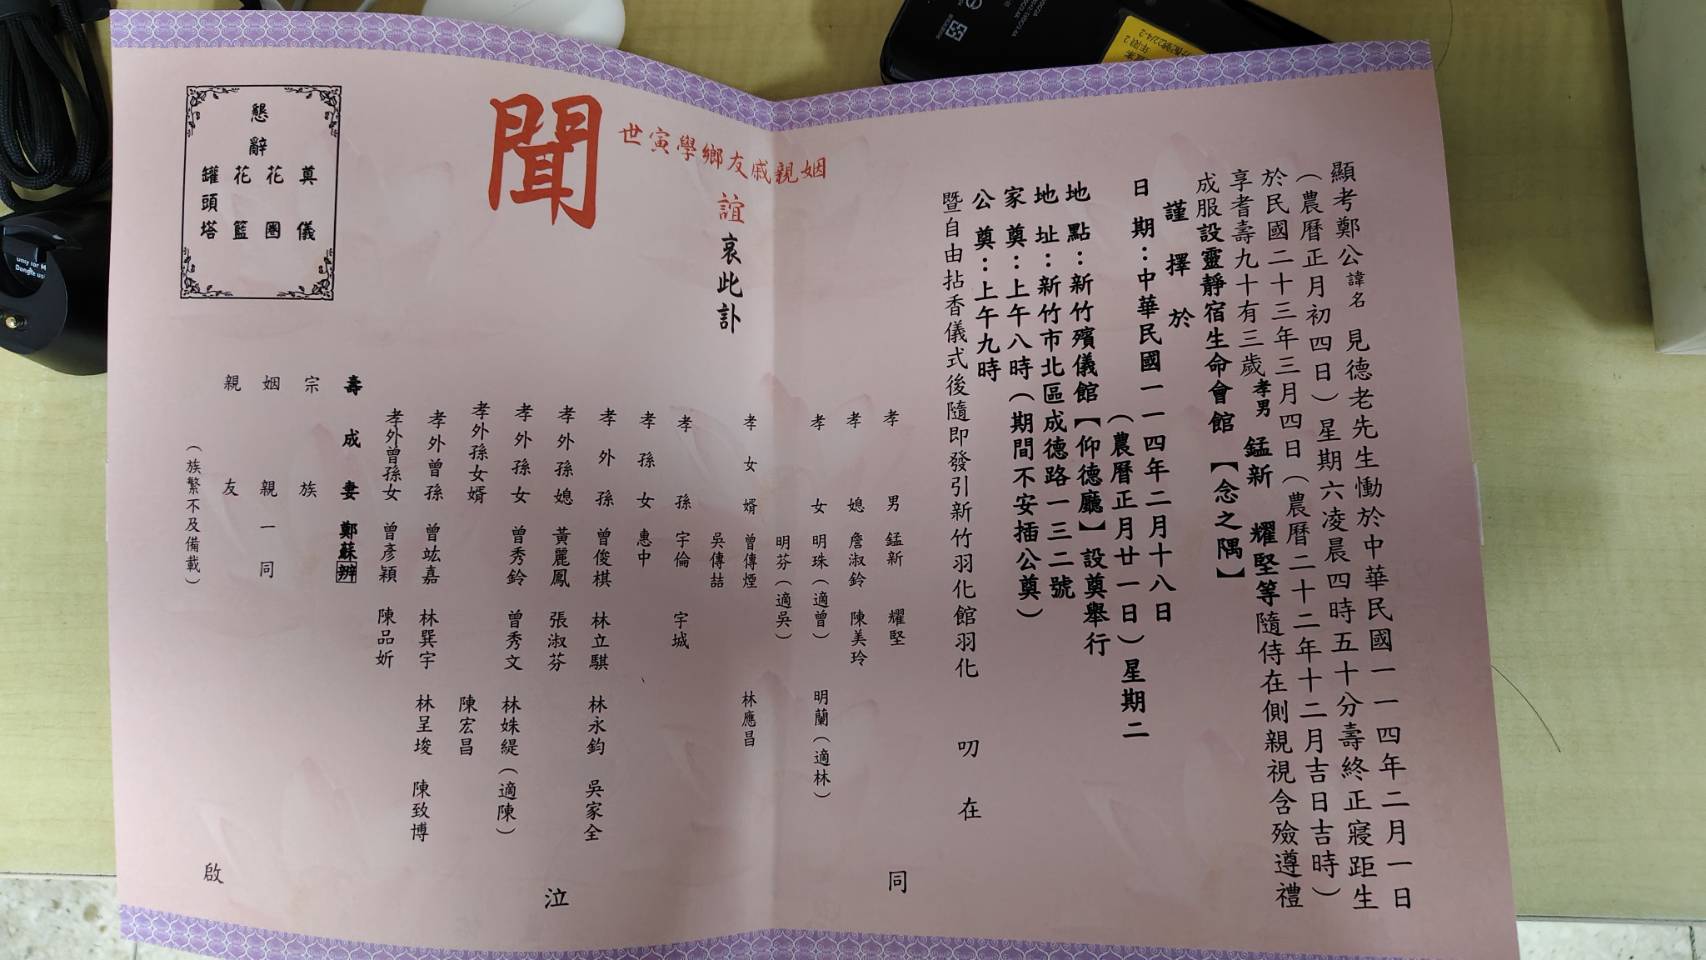 顯考鄭公諱名見德老先生慟於中華民國一一四年二月一日
（農曆正月初四日）星期六凌晨四時五十分壽終正寢距生
於民國二十三年三月四日（農曆二十二年十二月吉日吉時）
享耆壽九十有三歲孝男錳新 耀堅等隨侍在側親視含殮遵禮
成服設靈靜宿生命會館【念之隅】
謹擇於
日期：中華民國一一四年二月十八日
（農曆正月廿一日）星期二
地點：新竹殯儀館【仰德廳】設奠舉行
地址：新竹市北區成德路一三二號
家奠：上午八時（期間不安插公奠）
公奠：上午九時
暨自由拈香儀式後隨即發引新竹羽化館羽化 叨在
孝男 錳新 耀堅 同
孝媳 詹淑鈴 陳美玲
孝女 明珠（適曾） 明蘭（適林）
明芬（適吳）
孝女婿 曾傳煙 林應昌
吳傳喆
孝孫 宇倫 宇城
孝孫女 惠中
孝外孫 曾俊棋 林立騏 林永鈞 吳家全
孝外孫媳 黃麗鳳 張淑芬 泣
孝外孫女 曾秀鈴 曾秀文 林姝緹（適陳）
孝外孫女婿 陳宏昌
孝外曾孫 曾竑嘉 林巽宇 林呈埈 陳致博
孝外曾孫女 曾彥穎 陳品妡
壽成妻 鄭蘇辦
宗族
姻親一同
親友
（族繁不及備載）
啟
世寅學鄉友戚親姻
誼哀此訃
聞
懇辭
奠儀
花圈
花籃
罐頭塔